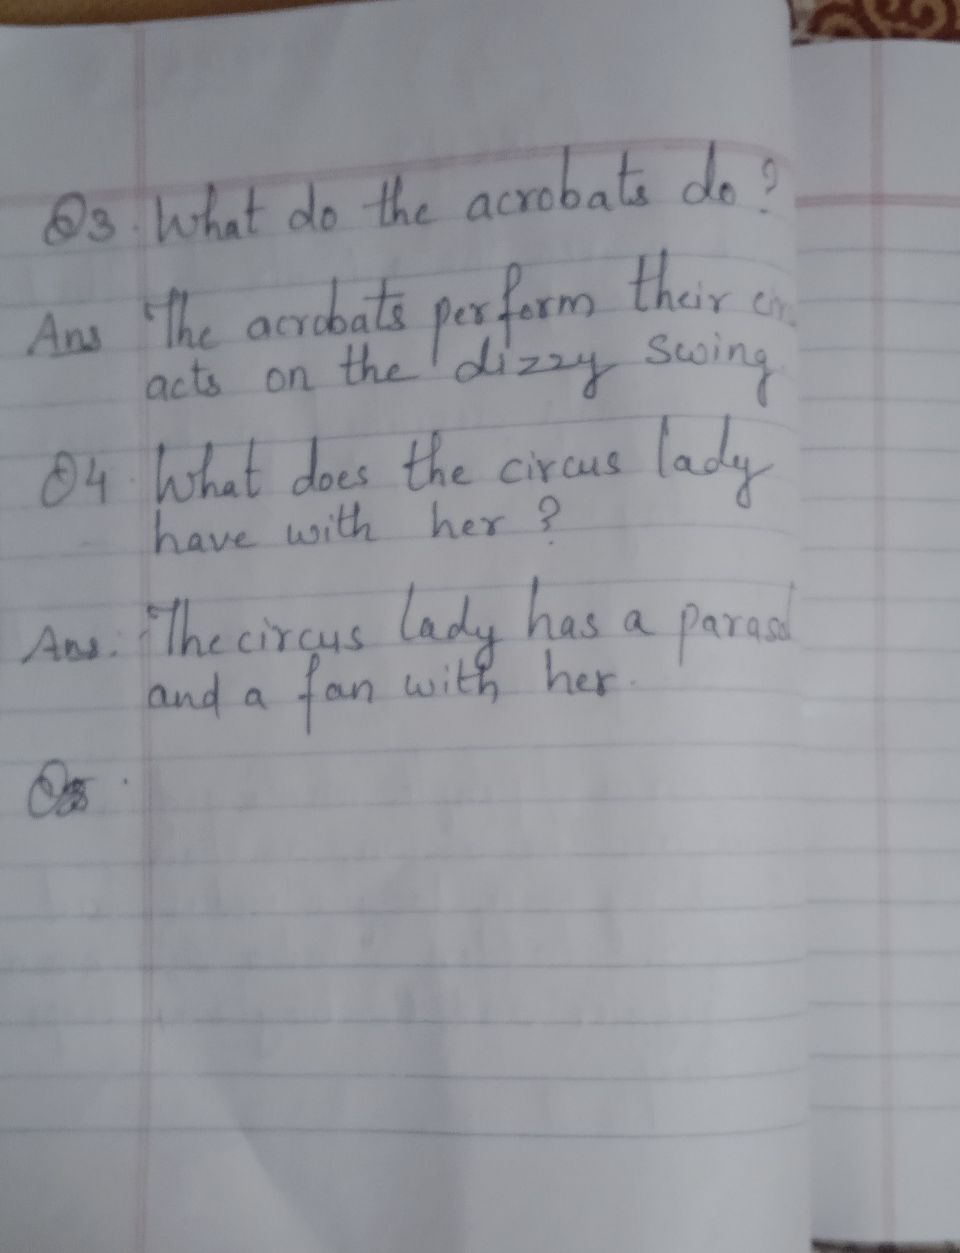 Q3. What do the acrobats do?
Ans The acrobats perform their
acts on the dizzy swing
Q4. What does the circus lady
have with her?
Ans. The circus lady has a parasol
and a fan with her.
Q5.